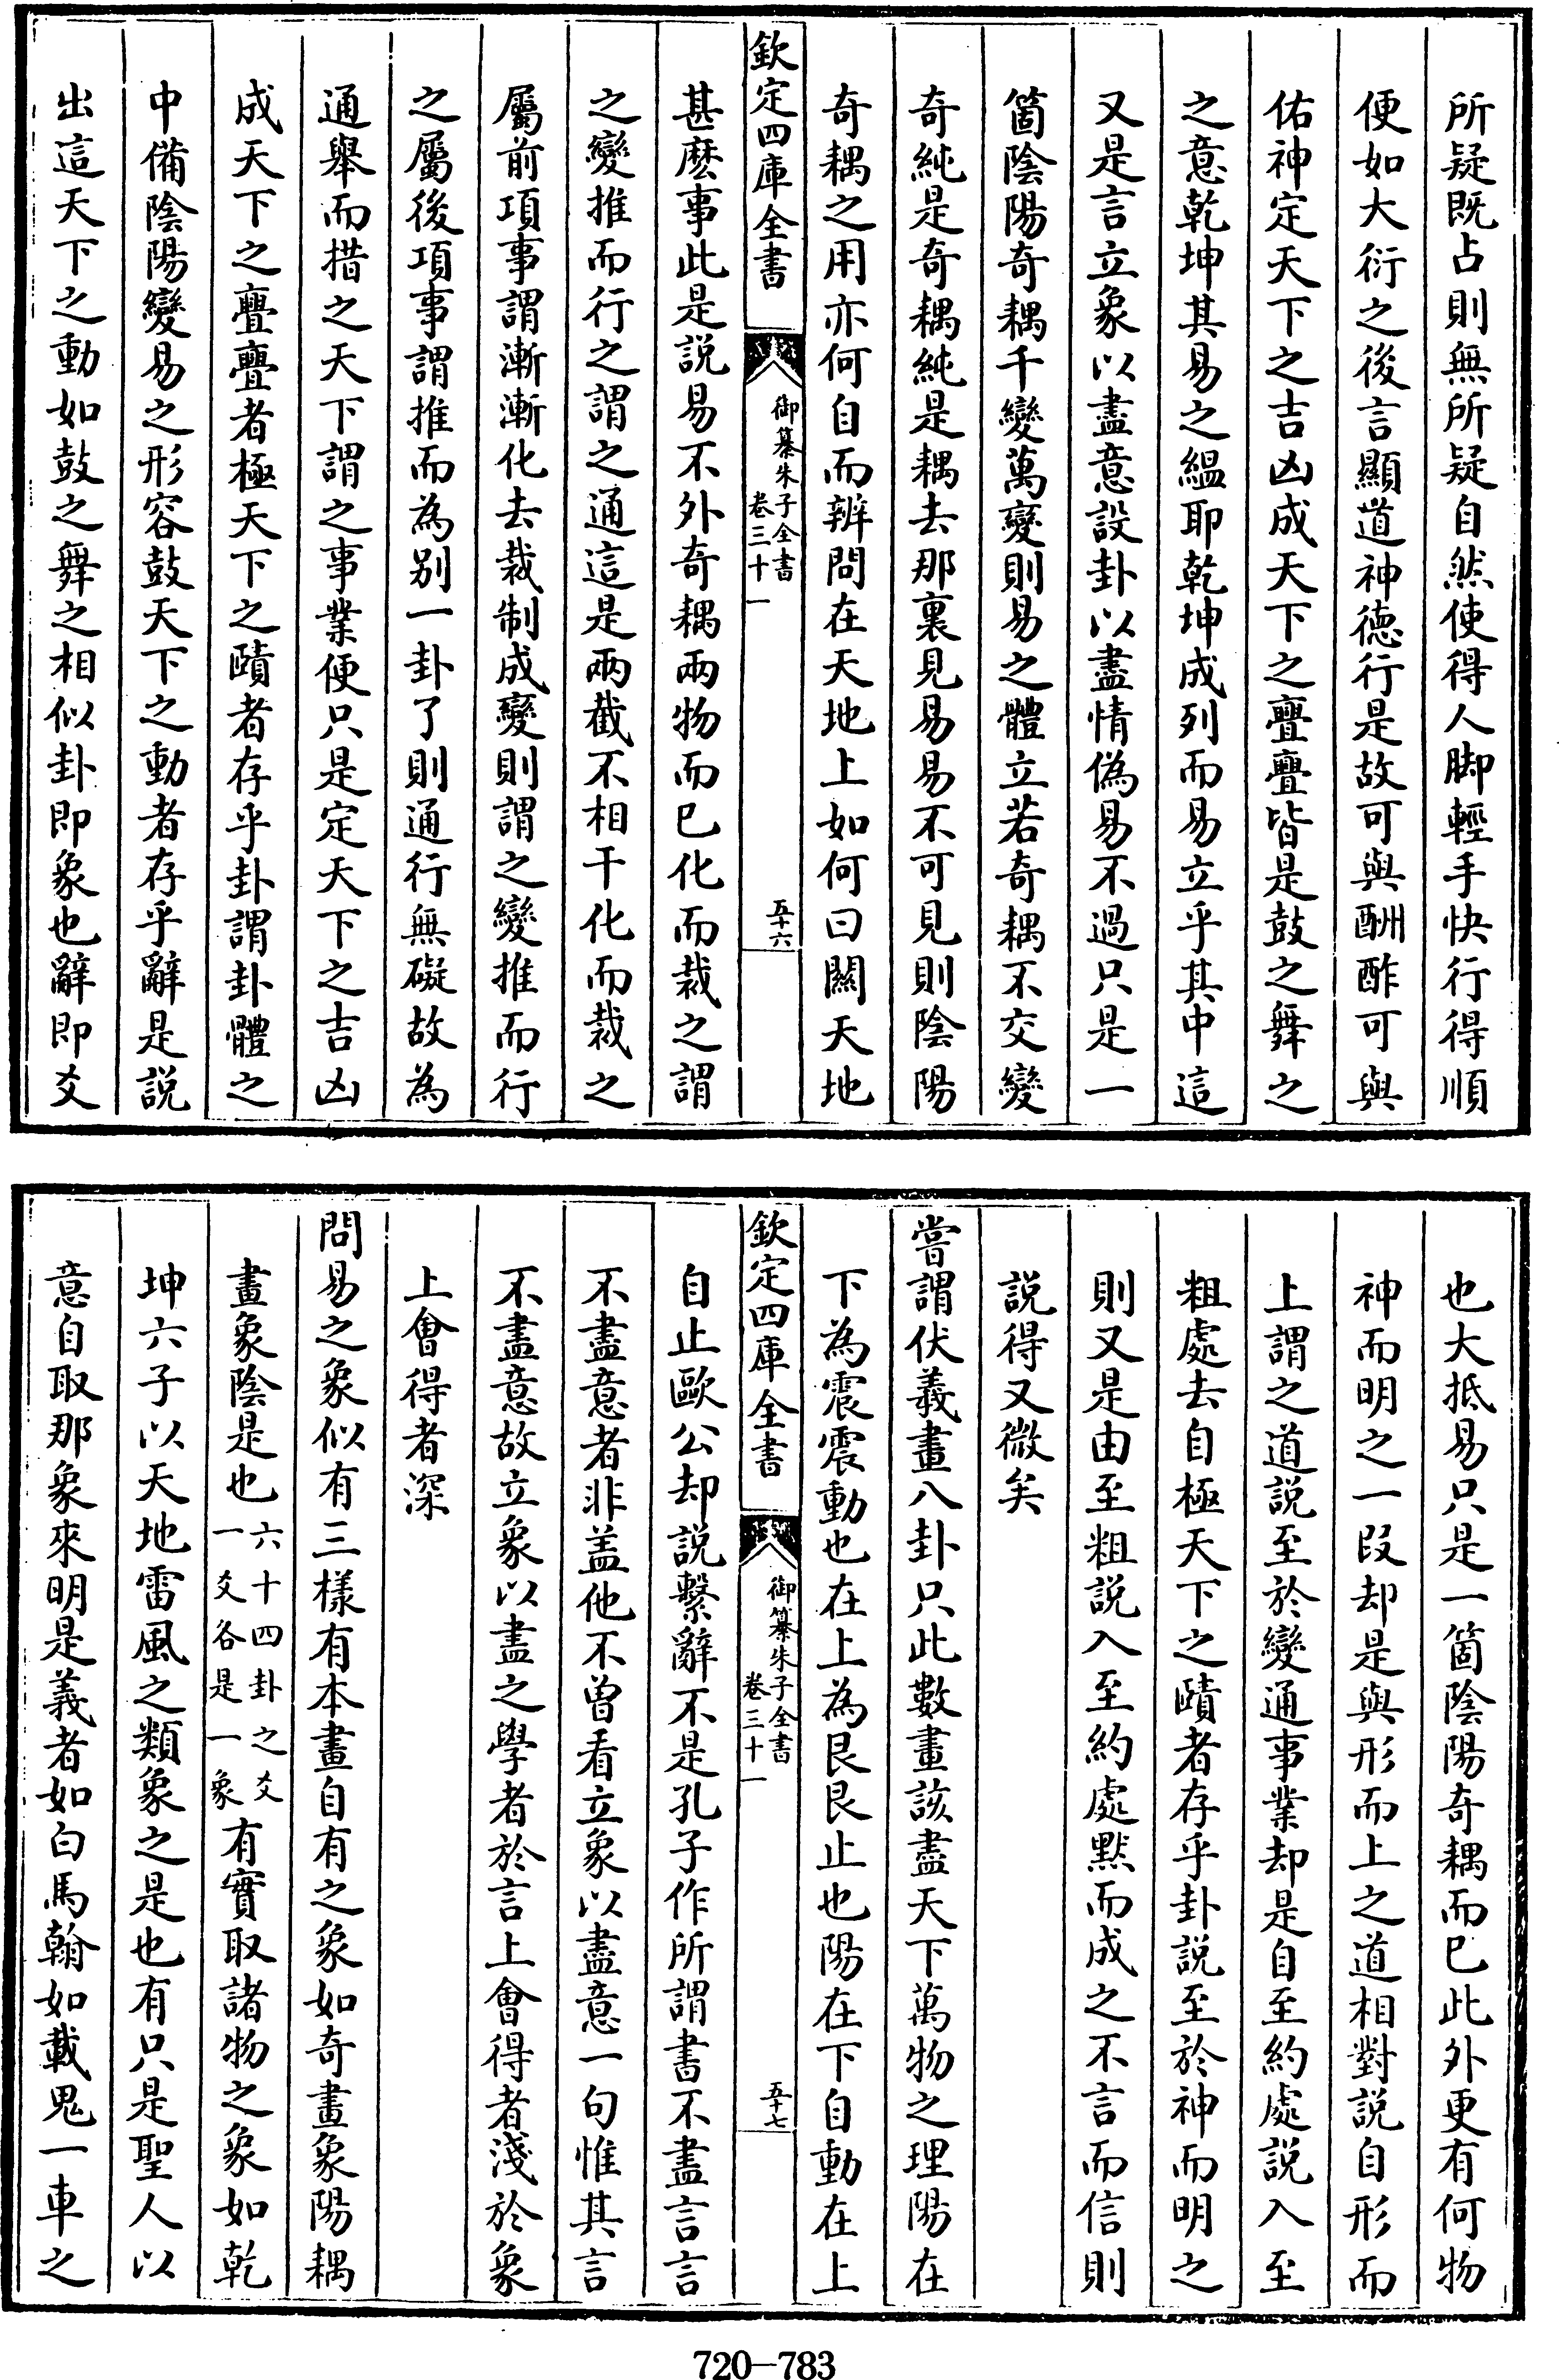 所疑既占則無所疑自然使得人脚輕手快行得順
便如大衍之後言顯道神德行是故可與酬酢可與
佑神定天下之吉凶成天下之亹亹皆是鼓之舞之
之意乾坤其易之緼耶乾坤成列而易立乎其中這
又是言立象以盡意設卦以盡情偽易不過只是一
箇陰陽奇耦千變萬變則易之體立若奇耦不交變
奇純是奇耦純是耦去那裏見易易不可見則陰陽
奇耦之用亦何自而辨問在天地上如何曰關天地
欽定四庫全書
御纂朱子全書
卷三十一
五十六
甚麽事此是說易不外奇耦兩物而已化而裁之謂
之變推而行之謂之通這是兩截不相干化而裁之
屬前項事謂漸漸化去裁制成變則謂之變推而行
之屬後項事謂推而為别一卦了則通行無礙故為
通舉而措之天下謂之事業便只是定天下之吉凶
成天下之亹亹者極天下之賾者存乎卦謂卦體之
中備陰陽變易之形容鼓天下之動者存乎辭是說
出這天下之動如鼓之舞之相似卦即象也辭即爻
也大抵易只是一箇陰陽奇耦而已此外更有何物
神而明之一段却是與形而上之道相對說自形而
上謂之道說至於變通事業却是自至約處說入至
粗處去自極天下之賾者存乎卦說至於神而明之
則又是由至粗說入至約處黙而成之不言而信則
說得又微矣
嘗謂伏羲畫八卦只此數畫該盡天下萬物之理陽在
下為震震動也在上為艮艮止也陽在下自動在上
欽定四庫全書
御纂朱子全書
卷三十一
五十七
自止歐公却說繫辭不是孔子作所謂書不盡言言
不盡意者非盖他不曾看立象以盡意一句惟其言
不盡意故立象以盡之學者於言上會得者淺於象
上會得者深
問易之象似有三樣有本畫自有之象如奇畫象陽耦
畫象陰是也六十四卦之爻一爻各是一象有實取諸物之象如乾
坤六子以天地雷風之類象之是也有只是聖人以
意自取那象來明是義者如白馬翰如載鬼一車之
720-783